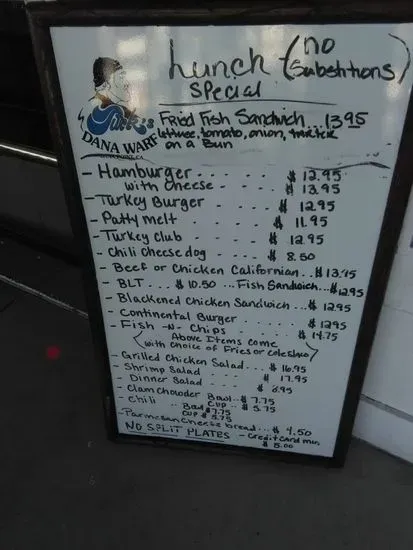 Lunch (no Substitions)
Special
Turk's
DANA WARF
Fried Fish Sandwich...13.95
lettuce, tomato, onion, tartar
on a Bun
- Hamburger ..... $ 12.95
with cheese ..... $ 13.95
- Turkey Burger ..... $ 12.95
- Patty melt ..... $ 11.95
- Turkey Club ..... $ 12.95
- Chili Cheese dog ..... $ 8.50
- Beef or Chicken Californian... $ 13.95
- BLT... $ 10.50 ... Fish Sandwich... $12.95
- Blackened Chicken Sandwich... $ 12.95
- Continental Burger ..... $ 12.95
- Fish -N- Chips ..... $ 14.75
Above Items come
with choice of Fries or coleslaw
- Grilled Chicken Salad... $ 16.95
- Shrimp Salad ..... $ 17.95
- Dinner Salad ..... $ 8.95
- Clam Chowder Bowl - $ 7.75
CUP .. $ 5.75
- Chili .. Bowl $7.75
CUP $ 5.75
- Parmesan Cheese bread... $ 4.50
NO SPLIT PLATES - Credit Card min.
$ 5.00